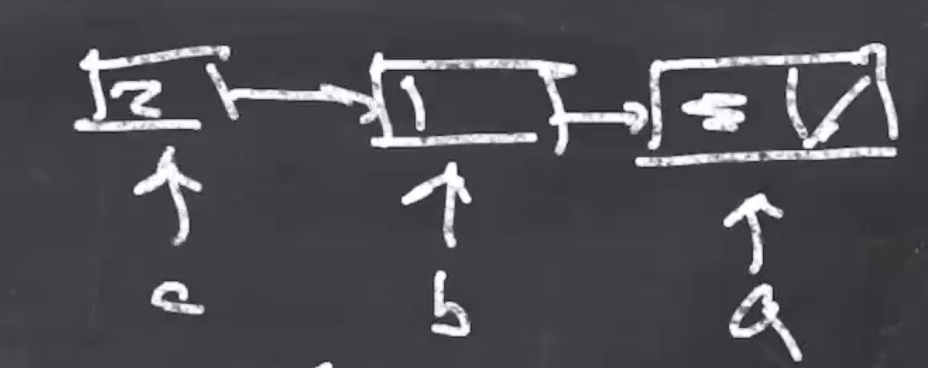 2 1
c b a